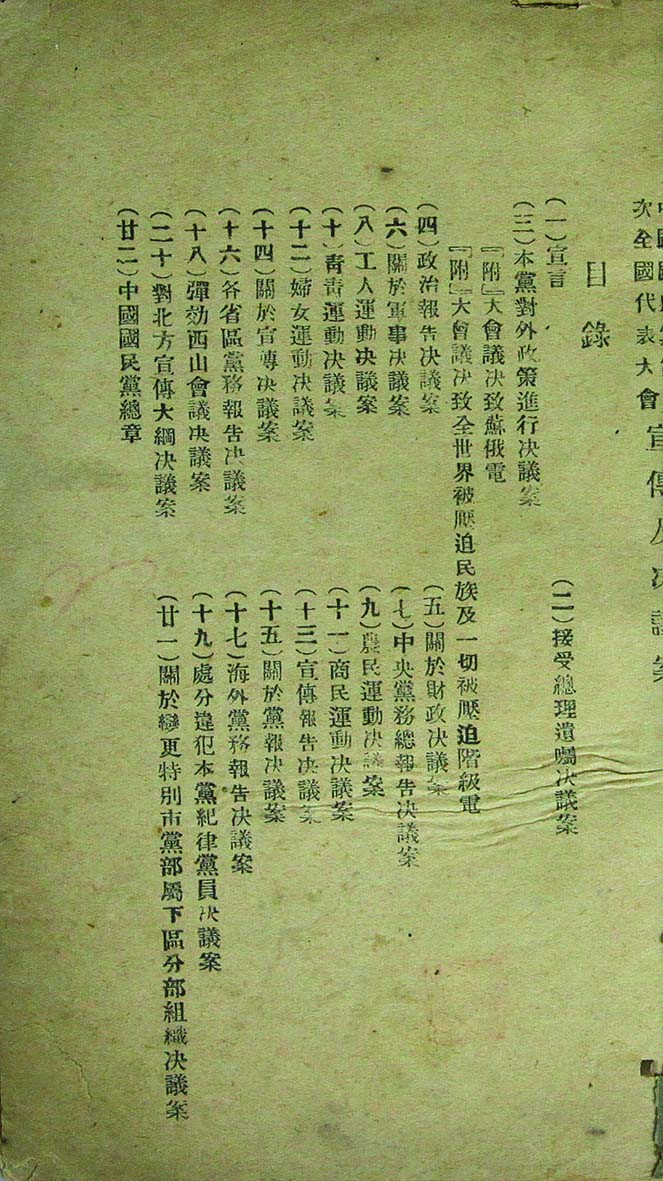 次全國代表大會
目錄
(一)宣言
(二)接受總理遺囑决議案
(三)本黨對外政策進行决議案
『附』大會議决致蘇俄電
『附』大會議决致全世界被壓迫民族及一切被壓迫階級電
(四)政治報告决議案
(五)關於財政决議案
(六)關於軍事决議案
(七)中央黨務總報告决議案
(八)工人運動决議案
(九)農民運動决議案
(十)青青運動决議案
(十一)商民運動决議案
(十二)婦女運動决議案
(十三)宣傳報告决議案
(十四)關於宣傳决議案
(十五)關於黨報决議案
(十六)各省區黨務報告决議案
(十七)海外黨務報告决議案
(十八)彈効西山會議决議案
(十九)處分違犯本黨紀律黨員决議案
(二十)對北方宣傳大綱决議案
(廿一)關於變更特別市黨部屬下區分部組織决議案
(廿二)中國國民黨總章